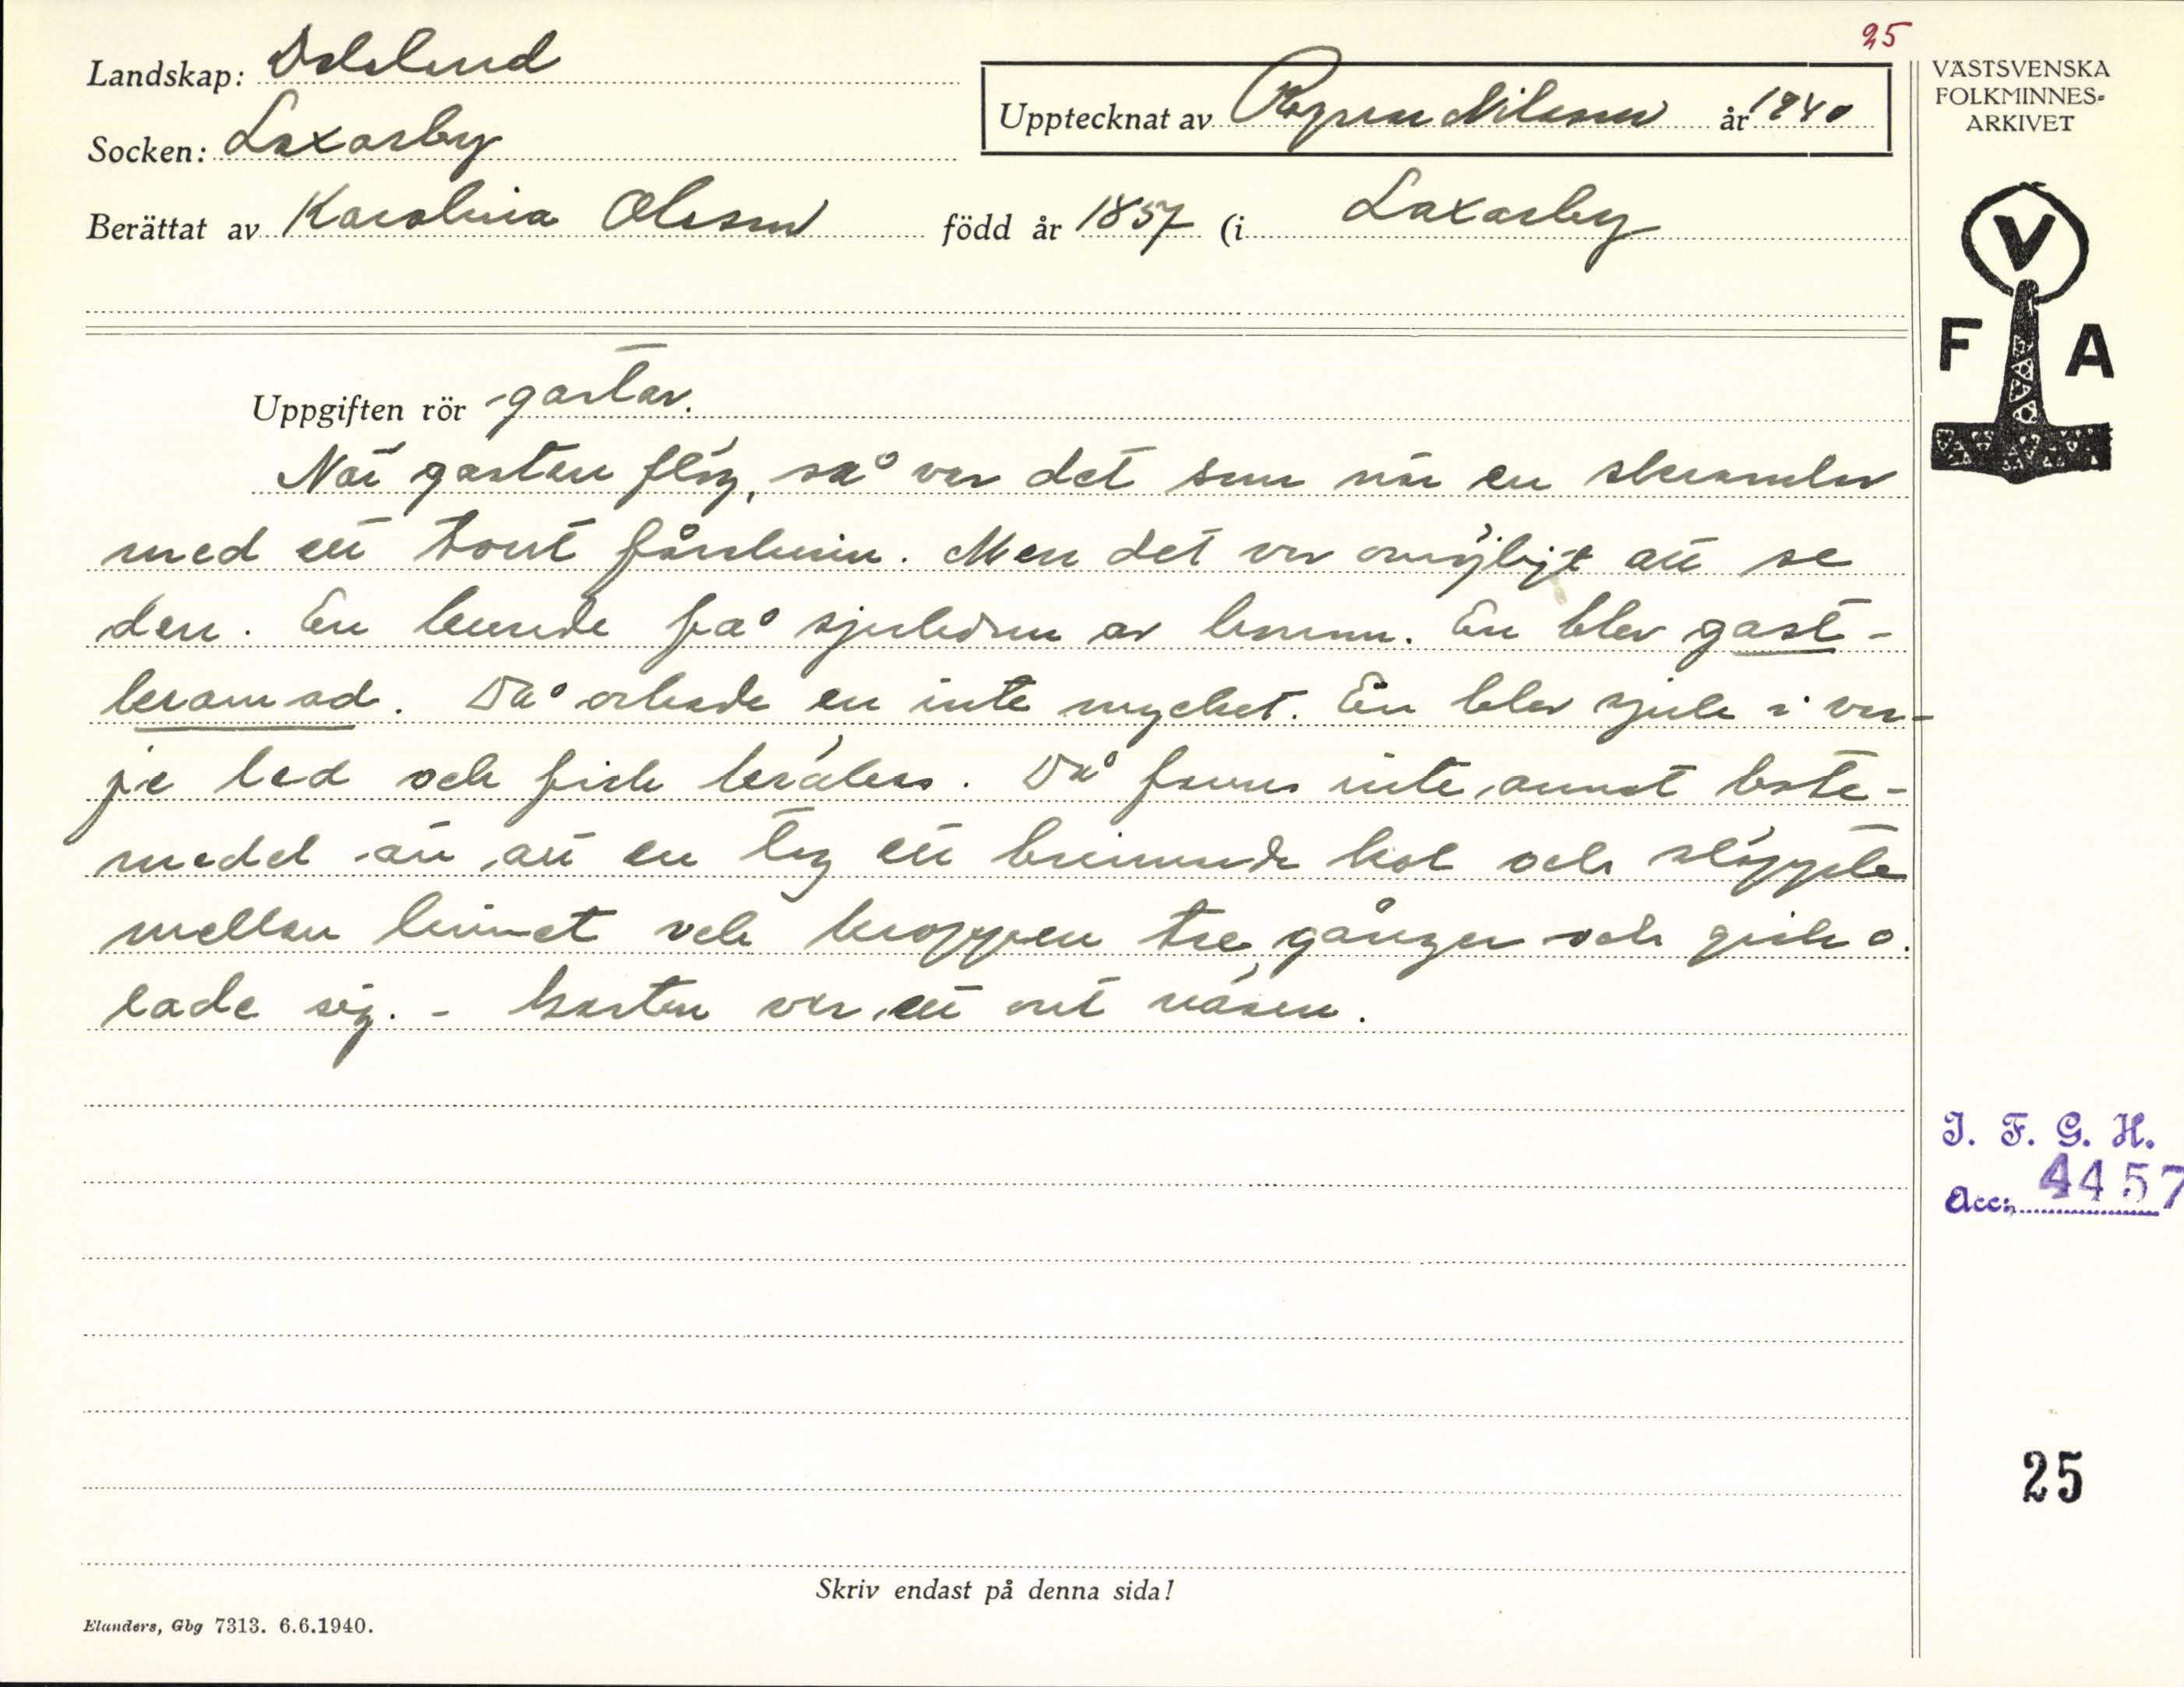 25
Landskap: Dalsland
Upptecknat av Ragnar Nilsson år 1940
Socken: Laxarby
Berättat av Karolina Olsson född år 1857 (i Laxarby
VÄSTSVENSKA
FOLKMINNES-
ARKIVET
V
F A
Uppgiften rör gastar.
När gasten flög, så var det som när en skramlar
med ett tort fårskinn. Men det var omöjligt att se
den. En kunde få sjukdom av honom. En blev gast-
kramad. Då orkade en inte mycket. En blev sjuk i var-
je led och fick kräkas. Då fanns inte annat bote-
medel än att en tog ett brinnande kol och släppte
mellan linnet och kroppen tre gånger och gick o.
lade sig. - Gasten var ett ont väsen.
I. F. G. H.
Acc: 4457
25
Skriv endast på denna sida!
Elanders, Gbg 7313. 6.6.1940.